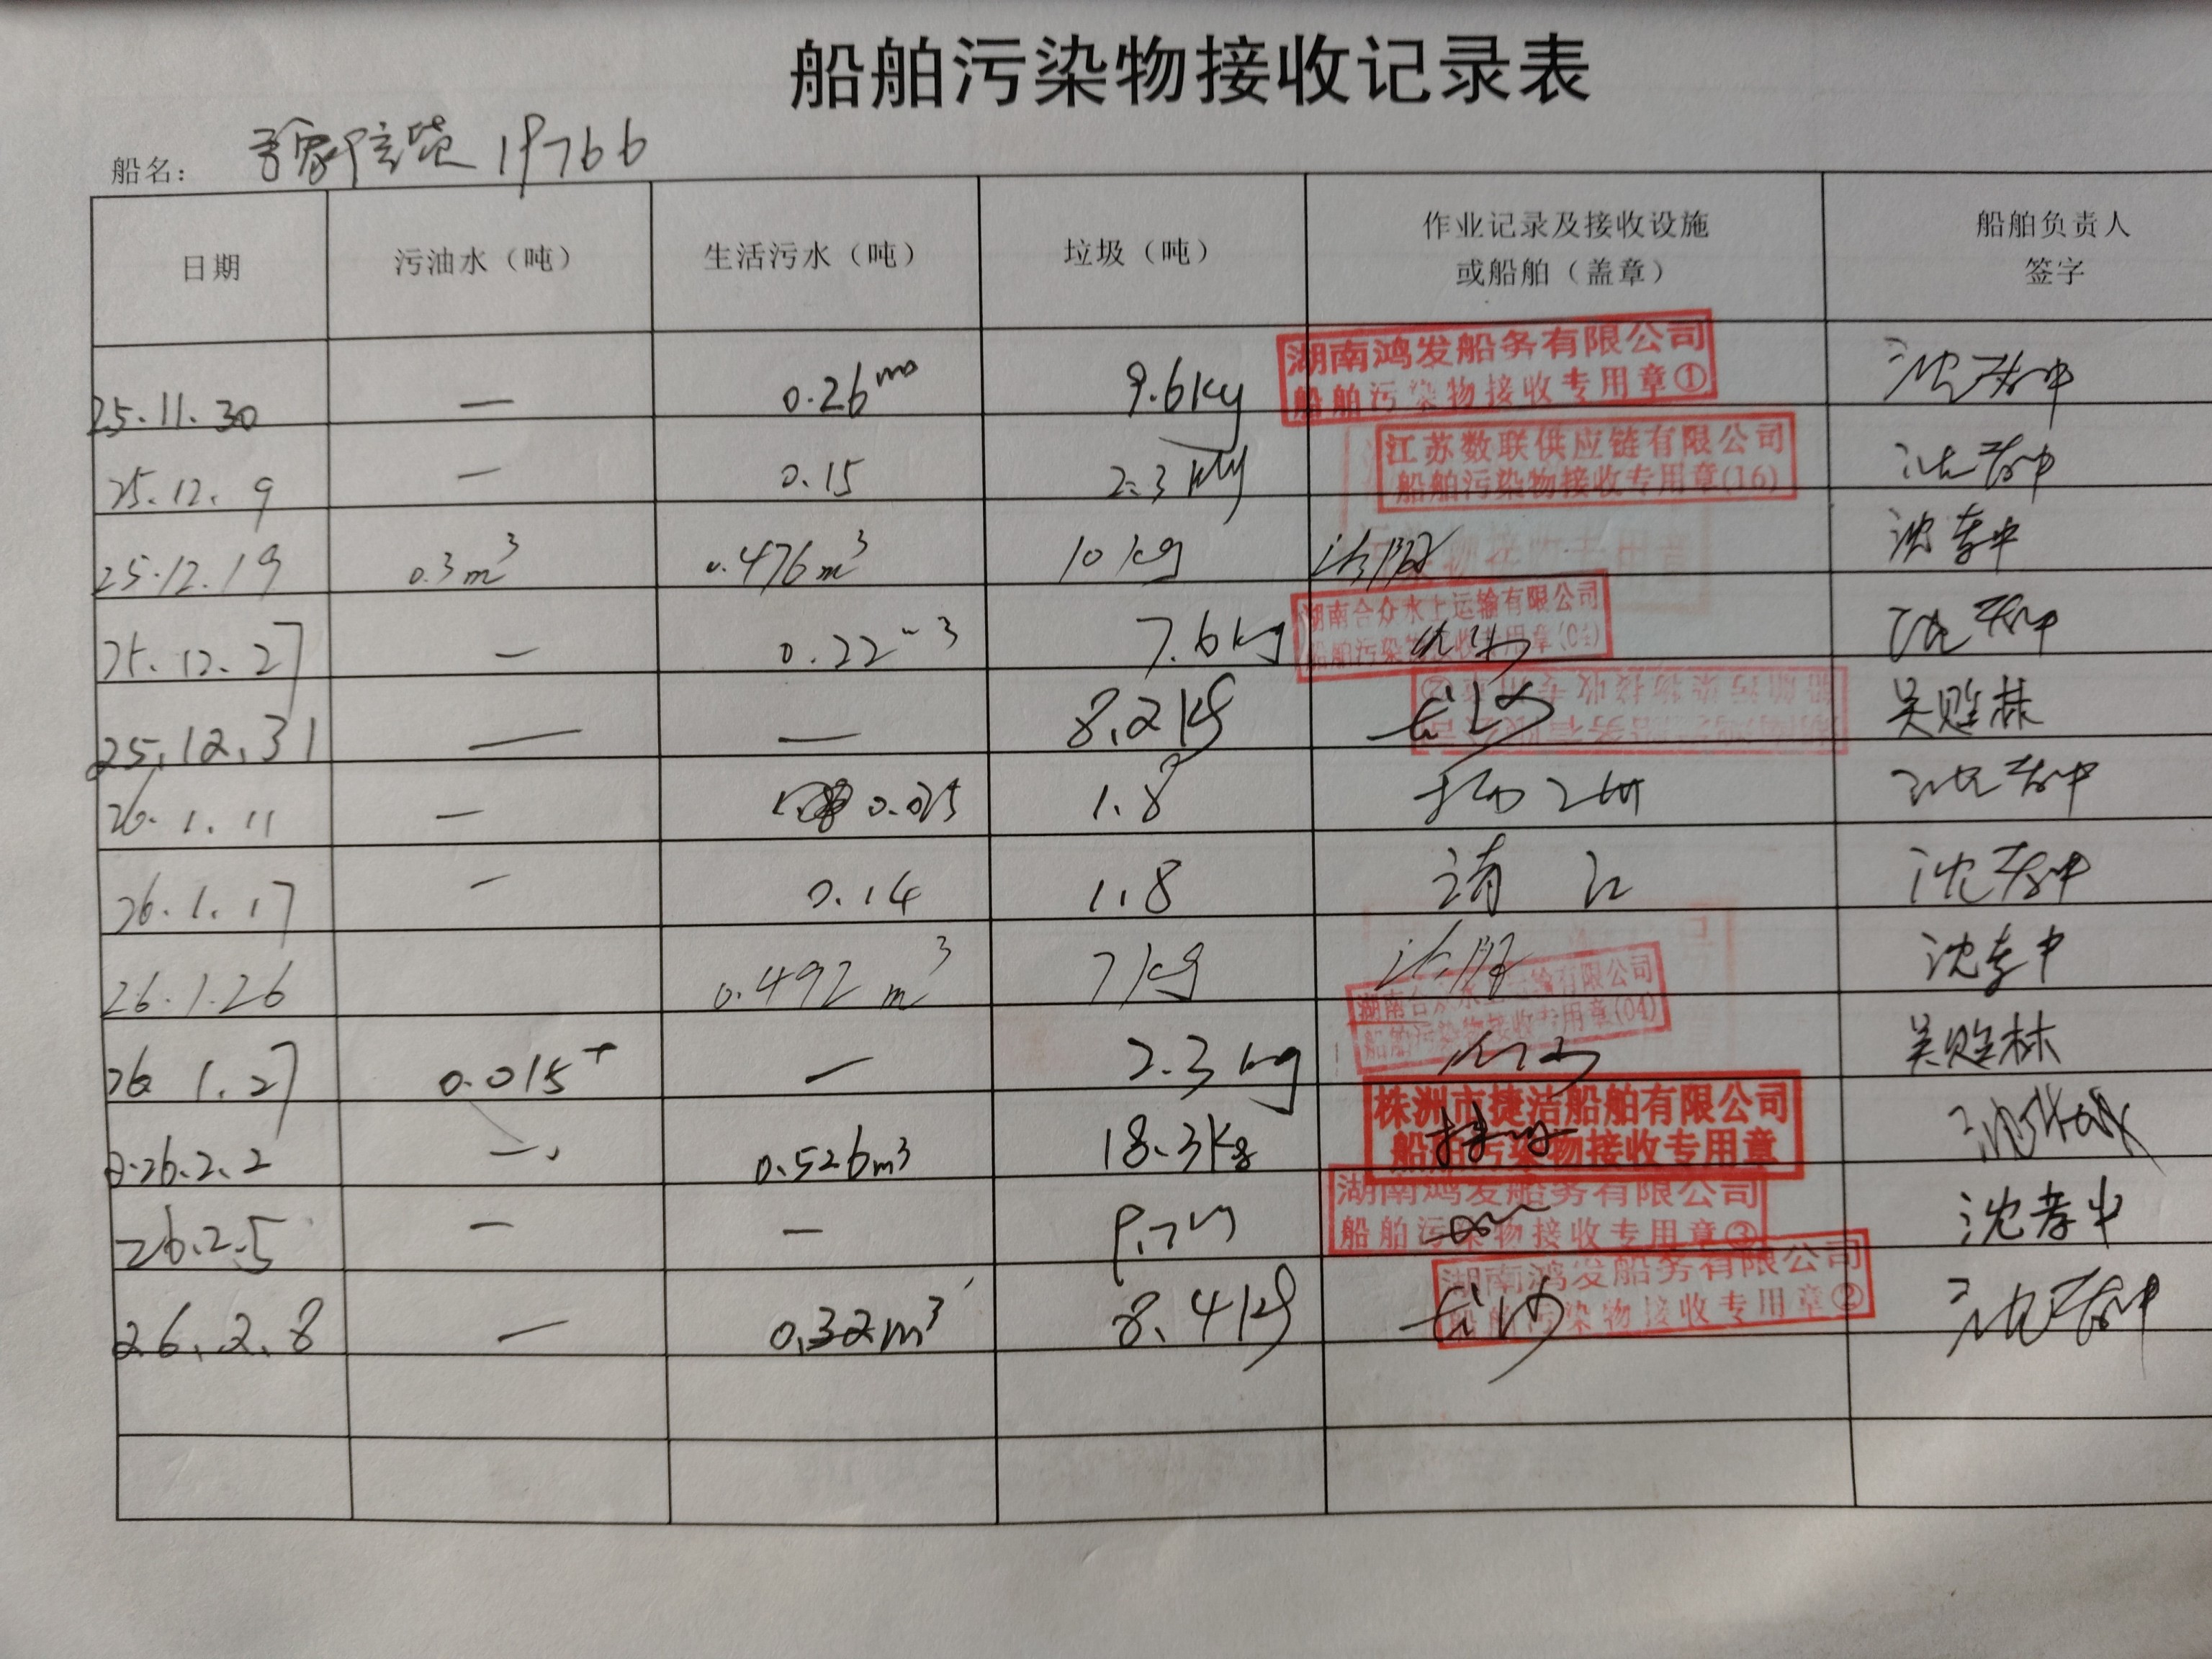 船舶污染物接收记录表
船名： 19766
日期 污油水（吨） 生活污水（吨） 垃圾（吨） 作业记录及接收设施或船舶（盖章） 船舶负责人签字
25.11.30 — 0.26 9.6kg 湖南鸿发船务有限公司 船舶污染物接收专用章① 沈孝中
25.12.9 — 0.15 2.3kg 江苏数联供应链有限公司 船舶污染物接收专用章(16) 沈孝中
25.12.19 0.3m³ 0.476m³ 10kg 沈孝中
25.12.27 — 0.22 7.6kg 湖南合众水上运输有限公司 船舶污染物接收专用章 沈孝中
25.12.31 — — 8.2kg 长沙 船舶污染物接收专用章②
26.1.11 — 0.025 1.8 沈孝中
26.1.17 — 0.14 1.8 沈孝中
26.1.26 0.492m³ 7kg 沈孝中
26 1.27 0.015T — 2.3kg 湖南合众水上运输有限公司 船舶污染物接收专用章(04)
26.2.2 — 0.526m³ 18.3kg 株洲市捷洁船舶有限公司 船舶污染物接收专用章
26.2.5 — — 湖南鸿发船务有限公司 船舶污染物接收专用章③ 沈孝中
26.2.8 — 0.32m³ 8.4kg 长沙 湖南鸿发船务有限公司 船舶污染物接收专用章② 沈孝中